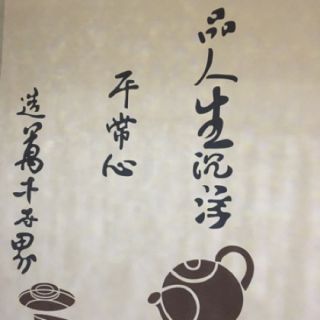 品人生沉浮
平常心
造萬千世界